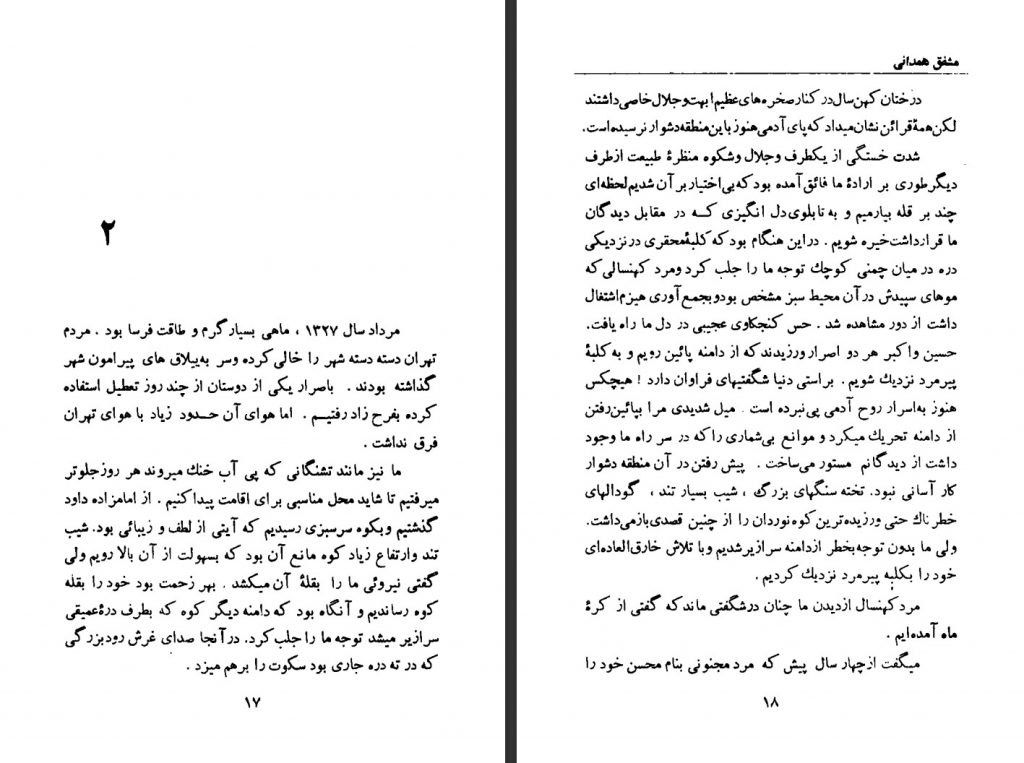 ۲
مرداد سال ۱۳۲۷ ، ماهی بسیار گرم و طاقت فرسا بود . مردم
تهران دسته دسته شهر را خالی کرده وسر به‌ییلاق های پیرامون شهر
گذاشته بودند . باصرار یکی از دوستان از چند روز تعطیل استفاده
کرده بفرح زاد رفتیم . اما هوای آن حدود زیاد با هوای تهران
فرق نداشت .
ما نیز مانند تشنگانی که پی آب خنك میروند هر روز جلوتر
میرفتیم تا شاید محل مناسبی برای اقامت پیدا کنیم . از امامزاده داود
گذشتیم وبکوه سرسبزی رسیدیم که آیتی از لطف و زیبائی بود. شیب
تند وارتفاع زیاد کوه مانع آن بود که بسهولت از آن بالا رویم ولی
گفتی نیروئی ما را بقلهٔ آن میکشد . بهر زحمت بود خود را بقله
کوه رساندیم و آنگاه بود که دامنه دیگر کوه که بطرف درهٔ عمیقی
سرازیر میشد توجه ما را جلب کرد. در آنجا صدای غرش رود بزرگی
که در ته دره جاری بود سکوت را برهم میزد .
۱۷
مشفق همدانی
درختان کهن سال در کنار صخره های عظیم ابهت و جلال خاصی داشتند
لکن همهٔ قرائن نشان میداد که پای آدمی هنوز باین منطقه دشوار نرسیده است.
شدت خستگی از یکطرف وجلال وشکوه منظرهٔ طبیعت از طرف
دیگر طوری بر ارادهٔ ما فائق آمده بود که بی اختیار بر آن شدیم لحظه‌ای
چند بر قله بیارمیم و به تابلوی دل انگیزی که در مقابل دیدگان
ما قرارداشت خیره شویم . دراین هنگام بود که کلبهٔ محقری در نزدیکی
دره در میان چمنی کوچك توجه ما را جلب کرد ومرد کهنسالی که
موهای سپیدش در آن محیط سبز مشخص بود و بجمع آوری هیزم اشتغال
داشت از دور مشاهده شد . حس کنجکاوی عجیبی در دل ما راه یافت.
حسین واکبر هر دو اصرار ورزیدند که از دامنه پائین رویم و به کلبهٔ
پیرمرد نزدیك شویم . براستی دنیا شگفتیهای فراوان دارد ! هیچکس
هنوز به‌اسرار روح آدمی پی نبرده است میل شدیدی مرا بپائین رفتن
از دامنه تحریك میکرد و موانع بی‌شماری را که در سر راه ما وجود
داشت از دیدگانم مستور می‌ساخت . پیش رفتن در آن منطقه دشوار
کار آسانی نبود. تخته سنگهای بزرگ ، شیب بسیار تند ، گودالهای
خطرناك حتی ورزیده ترین کوه نوردان را از چنین قصدی بازمی‌داشت.
ولی ما بدون توجه بخطر از دامنه سرازیر شدیم و با تلاش خارق العاده‌ای
خود را بکلبه پیرمرد نزدیك کردیم .
مرد کهنسال ازدیدن ما چنان درشگفتی ماند که گفتی از کرهٔ
ماه آمده‌ایم .
میگفت از چهار سال پیش که مرد مجنونی بنام محسن خود را
۱۸